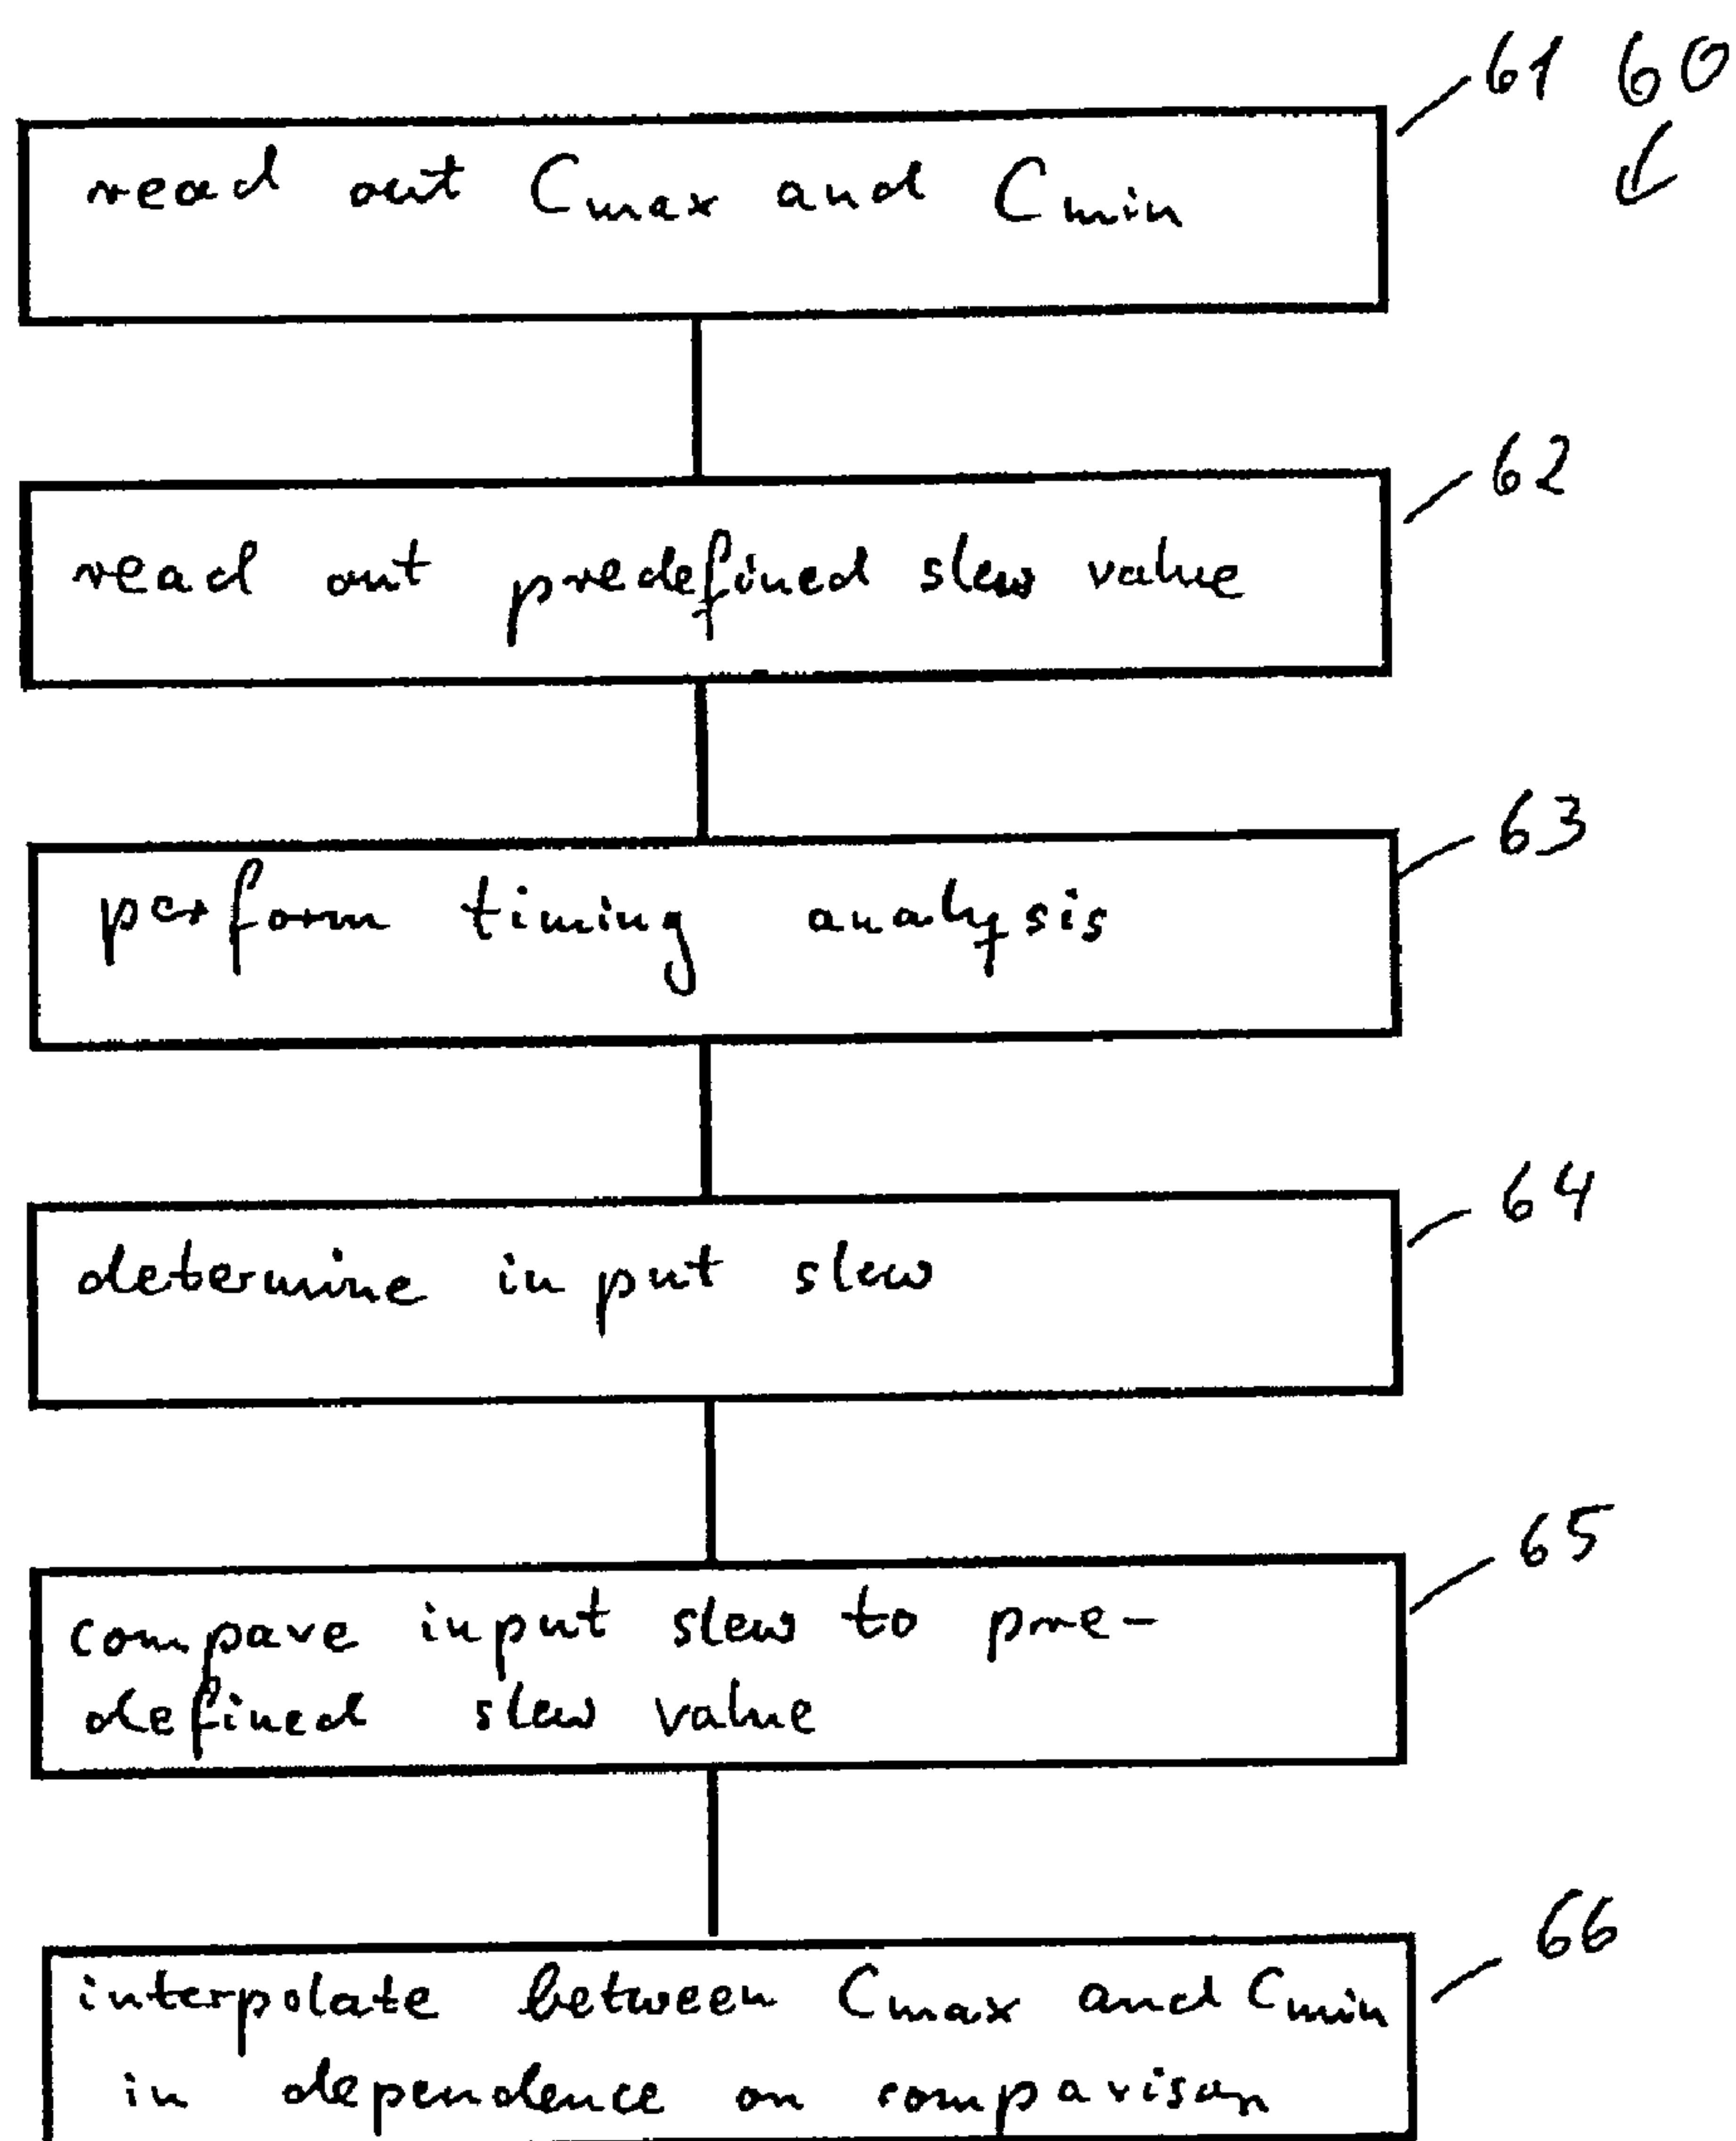 61 60
read out Cmax and Cmin
62
read out predefined slew value
63
perform timing analysis
64
determine input slew
65
compare input slew to pre-
defined slew value
66
interpolate between Cmax and Cmin
in dependence on comparison